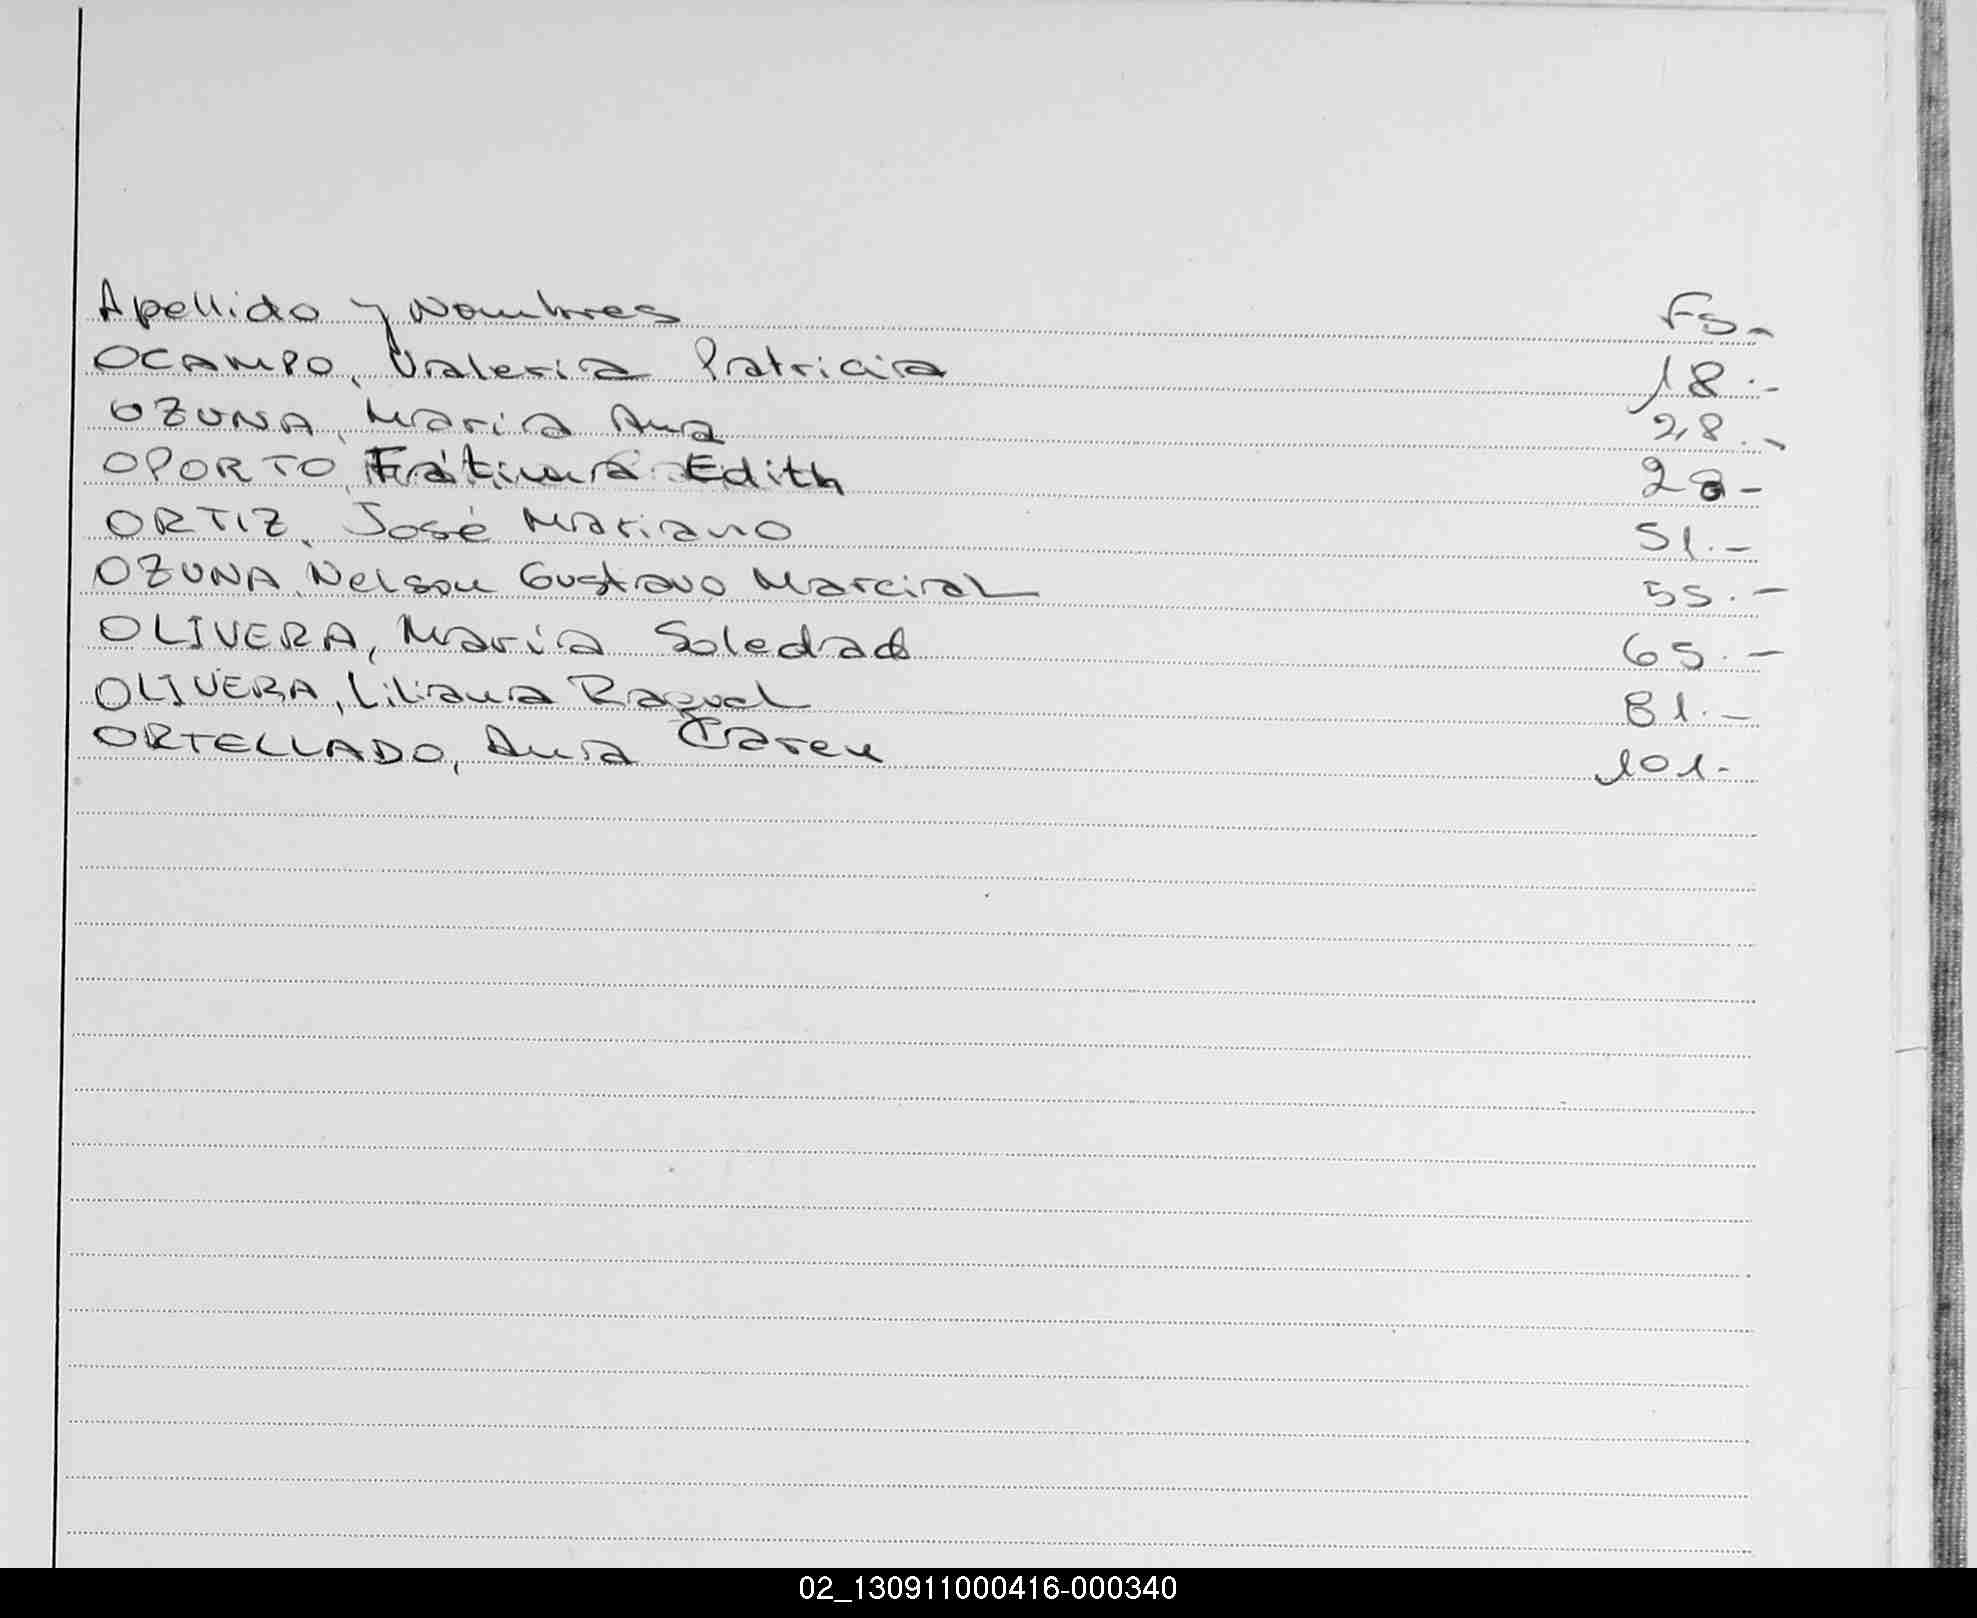 Apellido y Nombres Fs.-
OCAMPO, Valeria Patricia 18.-
OZUNA, Maria Ana 28.-
OPORTO, Fátima Edith
ORTIZ, José Mariano 51.-
OZUNA, Nelson Gustavo Marcial 55.-
OLIVERA, María Soledad 65.-
OLIVERA, Liliana Raquel 81.-
ORTELLADO, Ana Caren 101.-
02_130911000416-000340